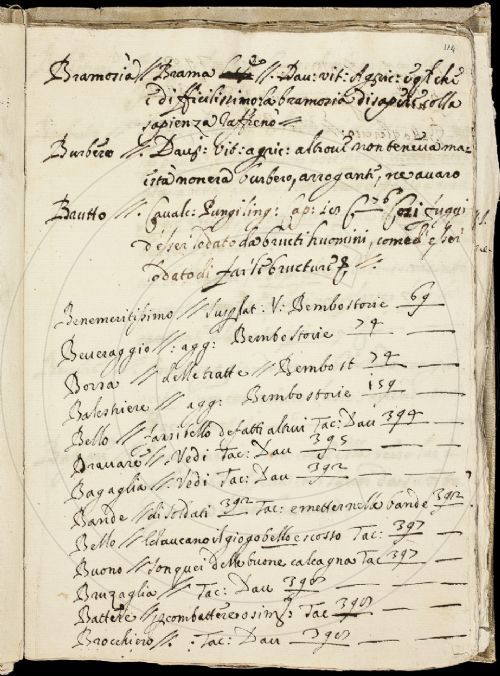 114
Bramosia // Brama // . Dav: vit: Agric: egli che
è difficilissimo: la bramosia di sapere colla
sapienza raffrenò //
Burbero // . Dav: Vit: agric: altrove non teneva ma=
està non era burbero, arrogante, ne avaro
Brutto // . Cavalc: Pungiling: Cap: fuggi
d'esser lodato da brutti huomini, come d'esser
lodato di far le brutture //.
Benemeritissimo // superlat: V: Bembo storie 69
Beveraggio // : agg: Bembo storie 74
Borra // delle tratte // Bembo st 74
Balestriere // agg: Bembo storie 159
Bello // farsi bello de fatti altrui Tac: Dav 394
Bravare // Vedi Tac: Dav 395
Bagaglia // Vedi Tac: Dav 392
Bande // di soldati 392 Tac: e metter nelle bande 392
Bello // claucano il giogo bello e scosso Tac: 397
Buono // delle buone calcagna Tac 397
Bruzaglia // Tac: Dav 398
Battere // combattere Tac 398
Brocchiero // . : Tac: Dav 398